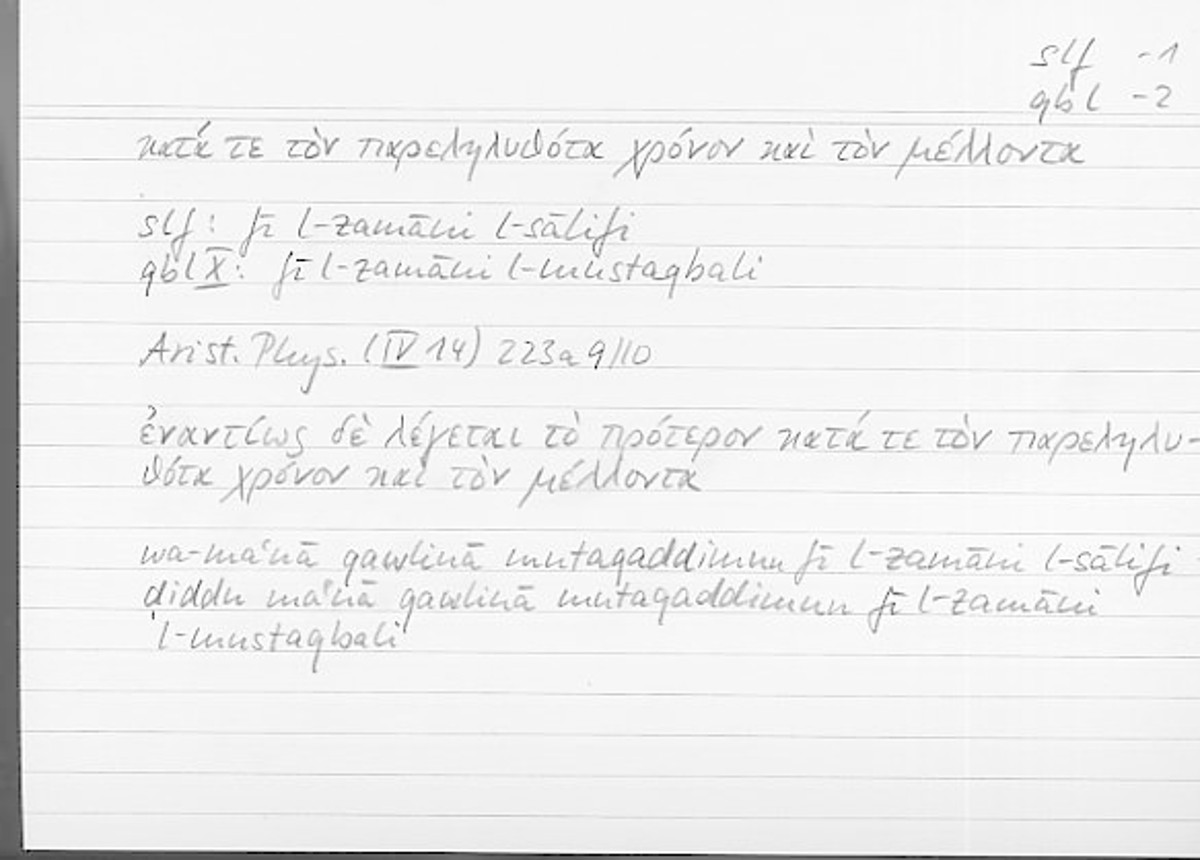 slf -1
qbl -2
κατά τε τὸν παρεληλυθότα χρόνον καὶ τὸν μέλλοντα
slf: fī l-zamāni l-sālifi
qbl X: fī l-zamāni l-mustaqbali
Arist. Phys. (IV 14) 223a 9/10
ἐναντίως δὲ λέγεται τὸ πρότερον κατά τε τὸν παρεληλυ-
θότα χρόνον καὶ τὸν μέλλοντα
wa-maʿnā qawlinā mutaqaddimun fī l-zamāni l-sālifi
ḍiddu maʿnā qawlinā mutaqaddimun fī l-zamāni
l-mustaqbali